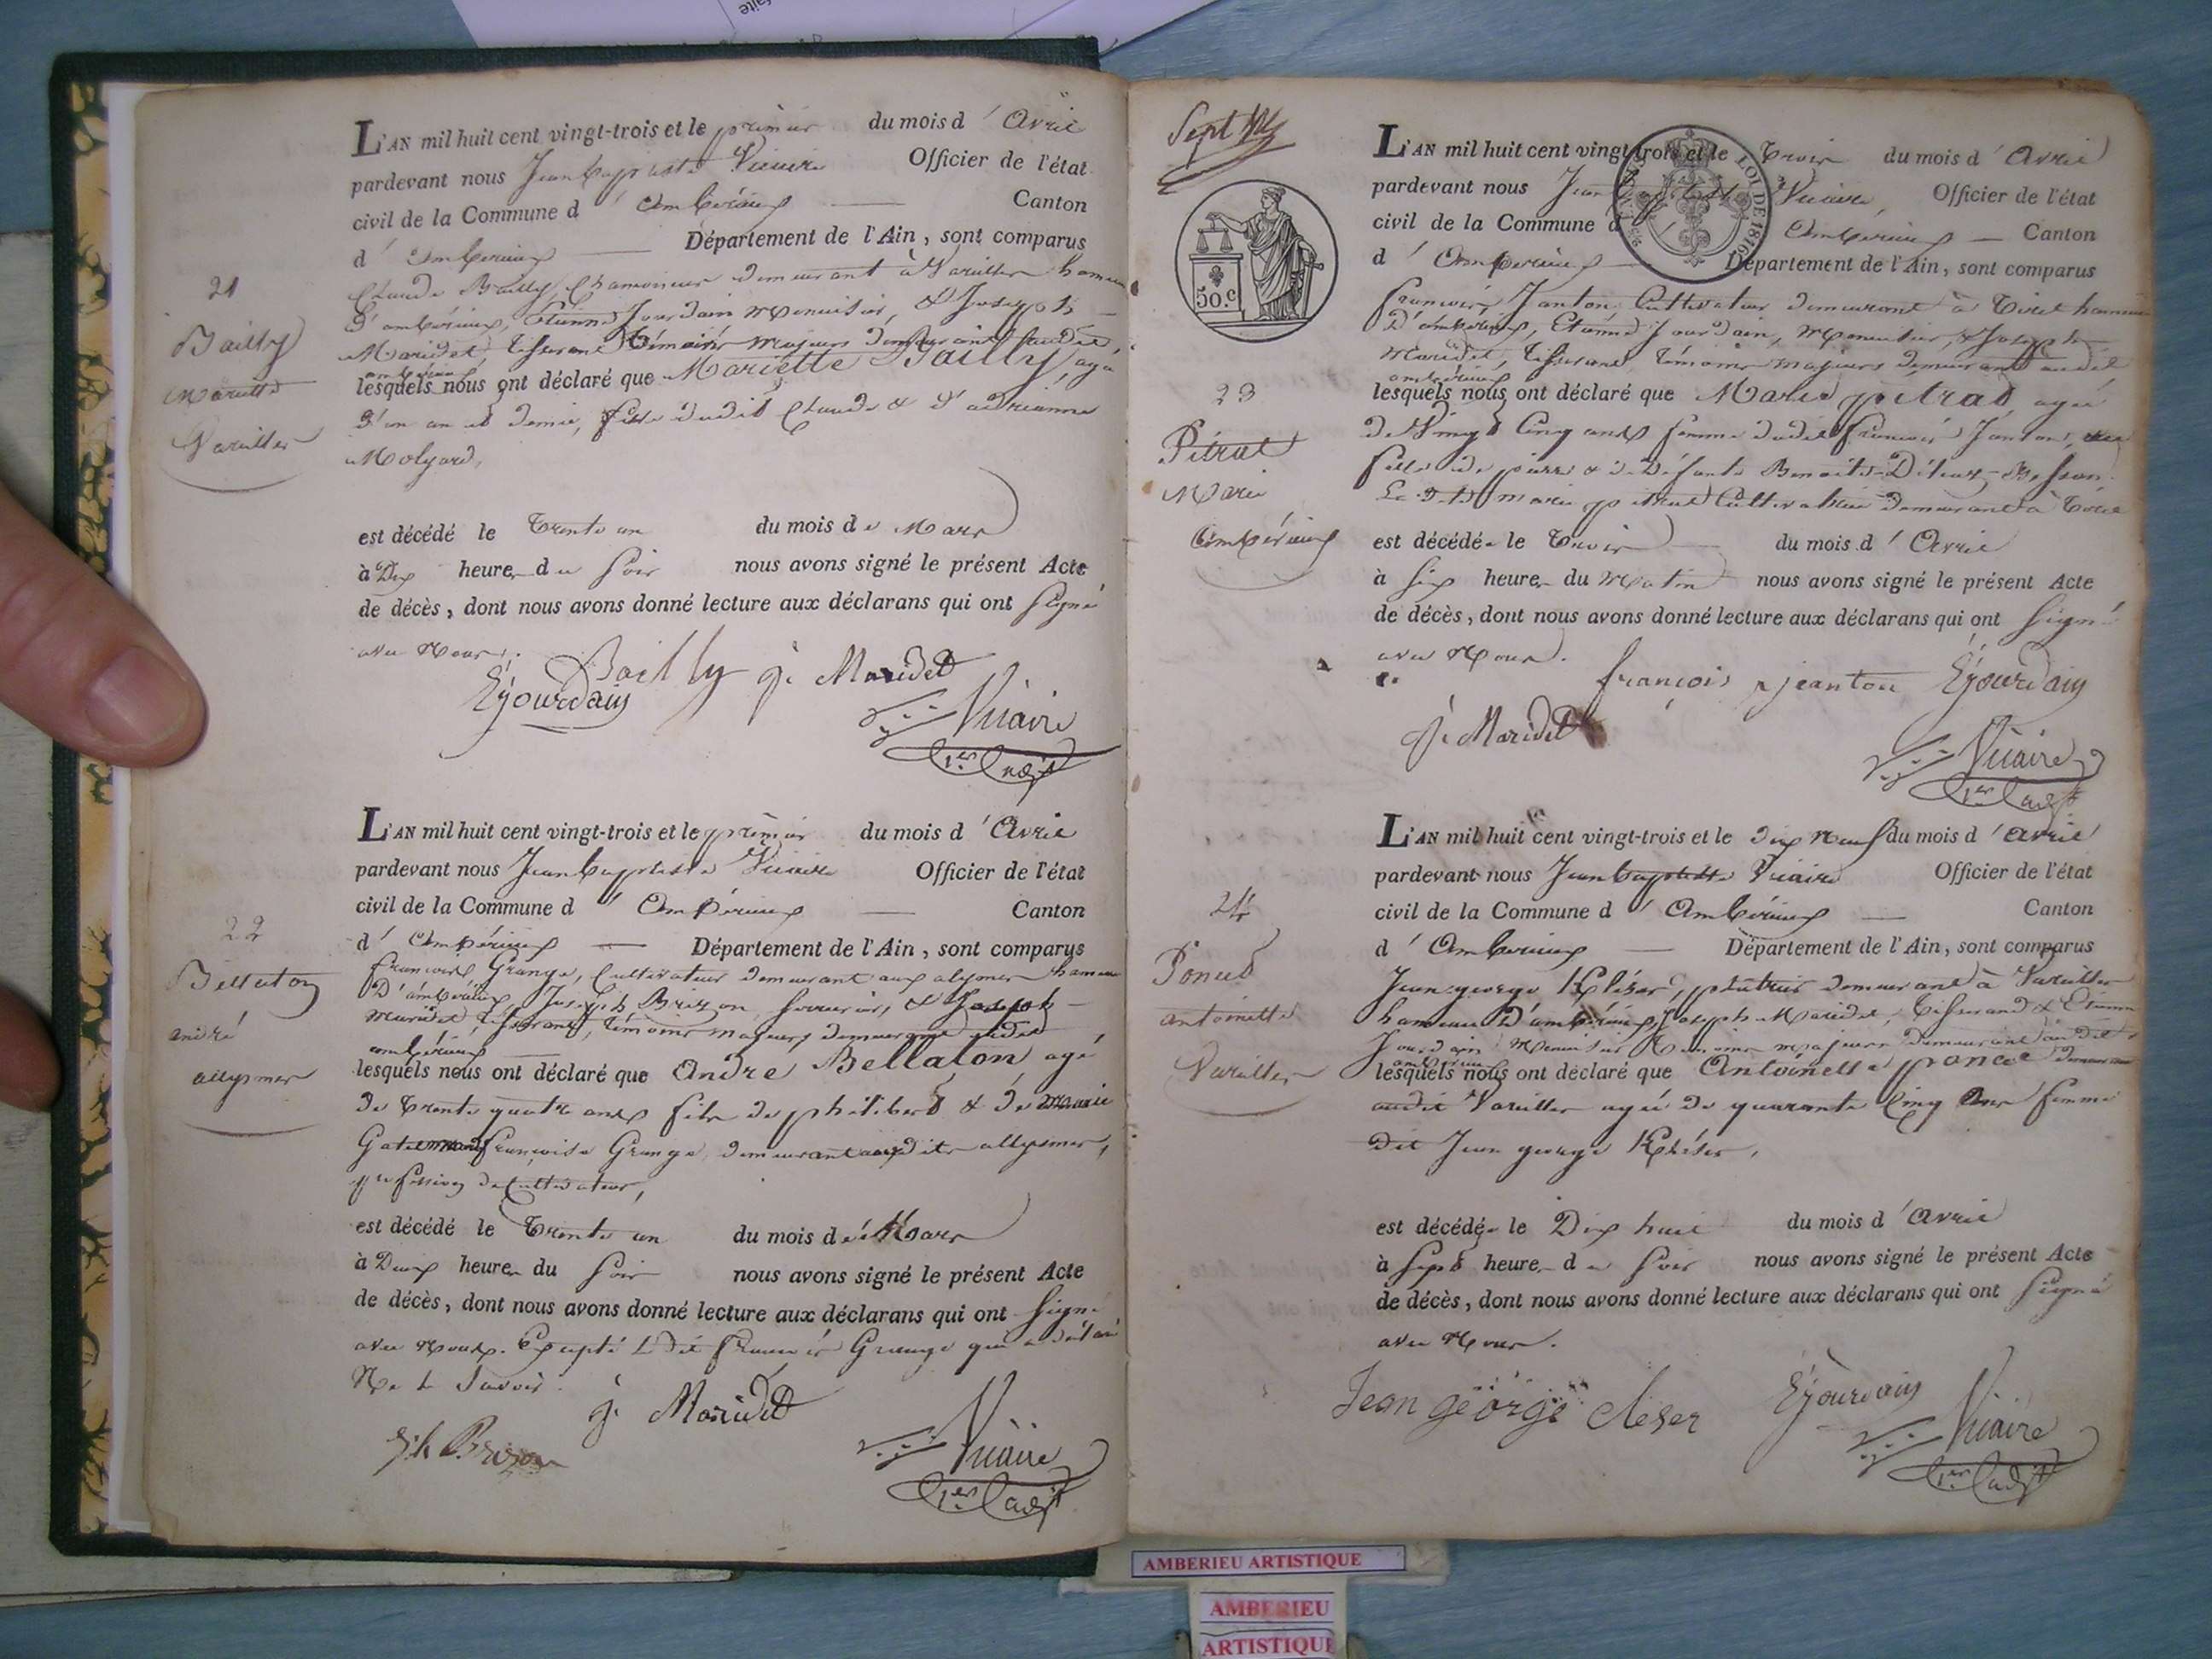 L'AN mil huit cent vingt-trois et le premier du mois d' Avril
pardevant nous Jean baptiste Vicaire Officier de l'état
civil de la Commune d' ambérieux Canton
d' ambérieux Département de l'Ain, sont comparus
Claude Bailly, Chamoineur demeurant à Vareilles hameau
D'ambérieux, étienne Jourdain Menuisier, & Joseph
Maridet, tisserand témoins majeurs demeurant audit
ambérieux
lesquels nous ont déclaré que Mariette Bailly, agée
D'un an et demie, fille dudit Claude & d'adrianne
Molyard,
est décédé le trente un du mois de Mars
à Dix heures du soir nous avons signé le présent Acte
de décès, dont nous avons donné lecture aux déclarans qui ont signé
avec Nous.
Bailly j. Maridet
Ejourdain
Vicaire
1er adjt
21
Bailly
Mariette
Vareilles
L'AN mil huit cent vingt-trois et le premier du mois d' Avril
pardevant nous Jean baptiste Vicaire Officier de l'état
civil de la Commune d' Ambérieux Canton
d' Ambérieux Département de l'Ain, sont comparus
françois Grange, Cultivateur demeurant aux alysmes hameau
D'ambérieux, Joseph Brizon, serrurier, & Joseph
Maridet tisserand, témoins majeurs demeurant audit
ambérieux
lesquels nous ont déclaré que André Bellaton, agé
de trente quatre ans fils de philibert & de marie
françoise Grange, demeurant auxdits allysmes,
profession de Cultivateur,
est décédé le trente un du mois de Mars
à Deux heures du soir nous avons signé le présent Acte
de décès, dont nous avons donné lecture aux déclarans qui ont signé
avec Nous. Excepté le dit françois Grange qui a déclaré
Ne le Savoir.
j. Maridet
jh Brizon
Vicaire
1er adjt
22
Bellaton
andré
allysmes
Sept
50.c
LOI DE 1816
L'AN mil huit cent vingt-trois et le trois du mois d' Avril
pardevant nous Jean baptiste Vicaire, Officier de l'état
civil de la Commune d' Ambérieux Canton
d' Ambérieux Département de l'Ain, sont comparus
françois Janton Cultivateur demeurant à tiret hameau
D'ambérieux, Etienne Jourdain, Menuisier, & Joseph
Maridet, tisserand témoins majeurs demeurant audit
ambérieux
lesquels nous ont déclaré que Marie pitrat agée
de Vingt Cinq ans femme dudit françois Janton,
fille de pierre & de Défunte Benoite Besson.
La dite marie pitrat Cultivatrice demeurant à tiret
est décédée le trois du mois d' Avril
à six heures du Matin nous avons signé le présent Acte
de décès, dont nous avons donné lecture aux déclarans qui ont signé
avec Nous.
françois jeanton Ejourdain
j. Maridet
Vicaire
1er adjt
23
Pitrat
Marie
Ambérieux
L'AN mil huit cent vingt-trois et le dix neuf du mois d' avril
pardevant nous Jean baptiste Vicaire Officier de l'état
civil de la Commune d' Ambérieux Canton
d' Ambérieux Département de l'Ain, sont comparus
Jean george Kléser, plâtrier demeurant à Vareilles
hameau D'ambérieux, Joseph Maridet, tisserand & Etienne
Jourdain Menuisier témoins majeurs demeurant audit
ambérieux
lesquels nous ont déclaré que Antoinette poncet demeurant
audit Vareilles agée de quarante Cinq ans femme
Dit Jean george Kléser,
est décédée le Dix huit du mois d' avril
à sept heures du soir nous avons signé le présent Acte
de décès, dont nous avons donné lecture aux déclarans qui ont signé
avec Nous.
Jean george cleser Ejourdain
Vicaire
1er adjt
24
Poncet
antoinette
Vareilles
AMBERIEU ARTISTIQUE
AMBERIEU
ARTISTIQUE